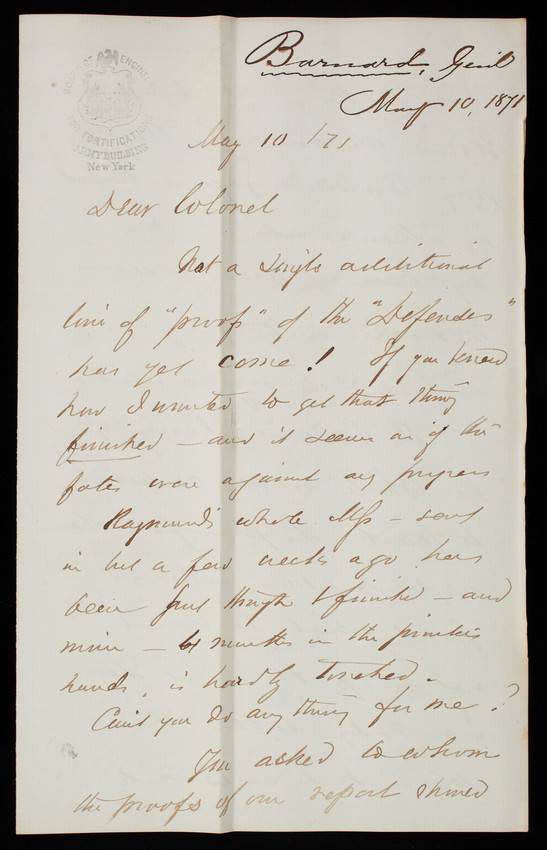 Barnard, Genl
May 10, 1871
BOARD OF ENGINEERS
FOR FORTIFICATIONS
ARMY BUILDING
New York
May 10 /71
Dear Colonel
Not a single additional
line of "proof" of the "Defenses"
has yet come! If you knew
how I wanted to get that thing
finished – and it seems as if the
fates were against any progress
Raymond's whole Mss – sent
in but a few weeks ago has
been put through & finished – and
mine – 4 months in the printers
hands, is hardly touched.
Can't you do any thing for me?
You asked to whom
the proofs of our report should